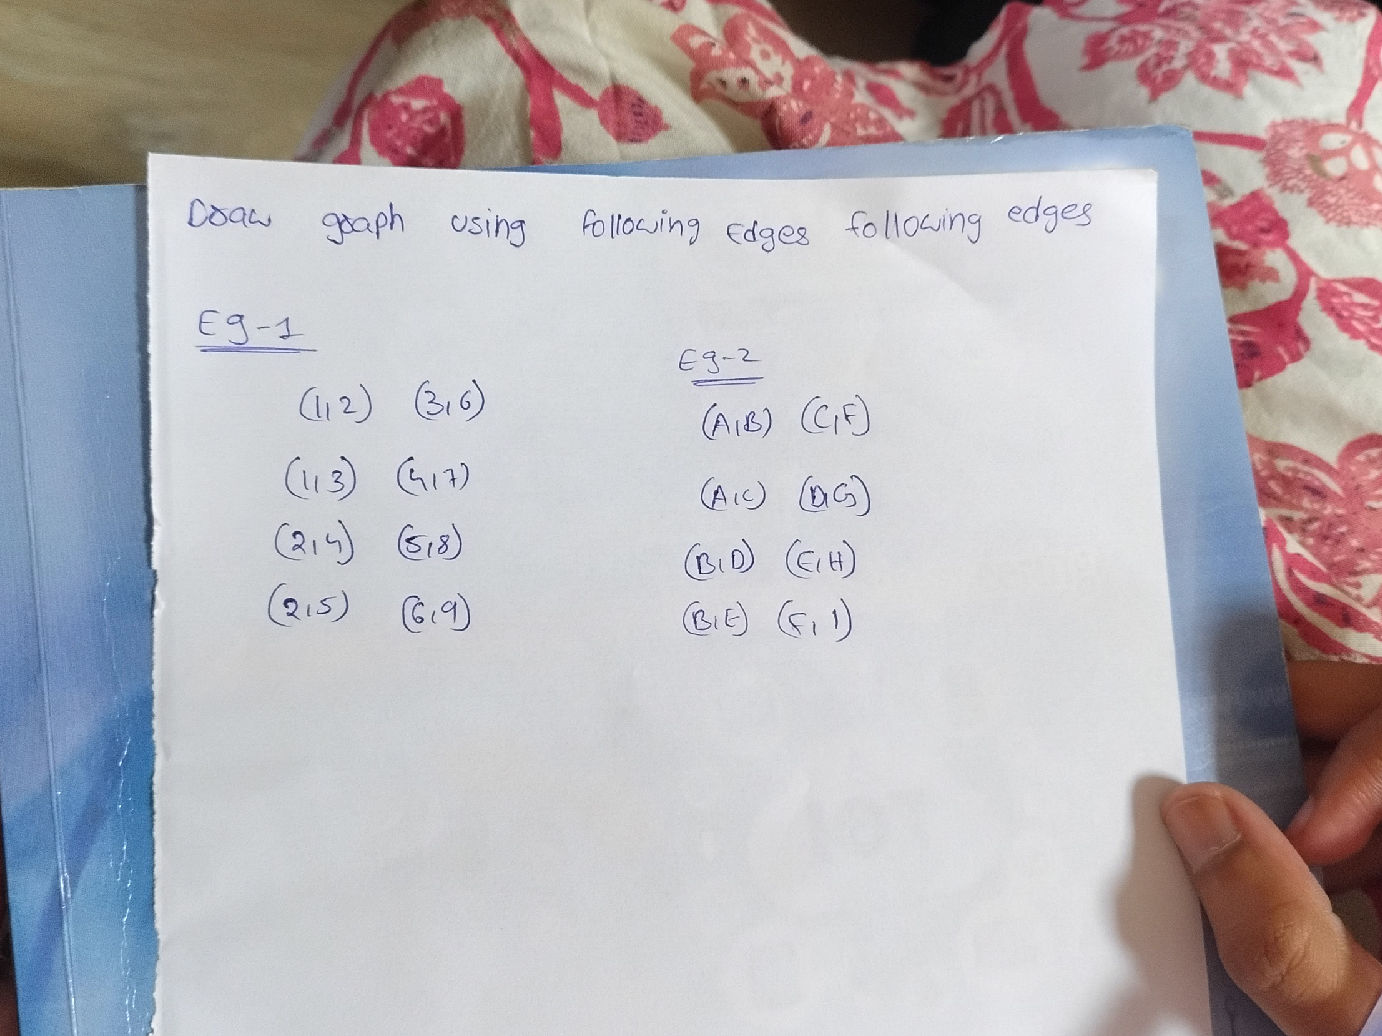 Draw graph using following edges following edges
Eg-1
(1,2) (3,6)
(1,3) (4,7)
(2,4) (5,8)
(2,5) (6,9)
Eg-2
(A,B) (C,F)
(A,C) (D,G)
(B,D) (E,H)
(B,E) (F,I)